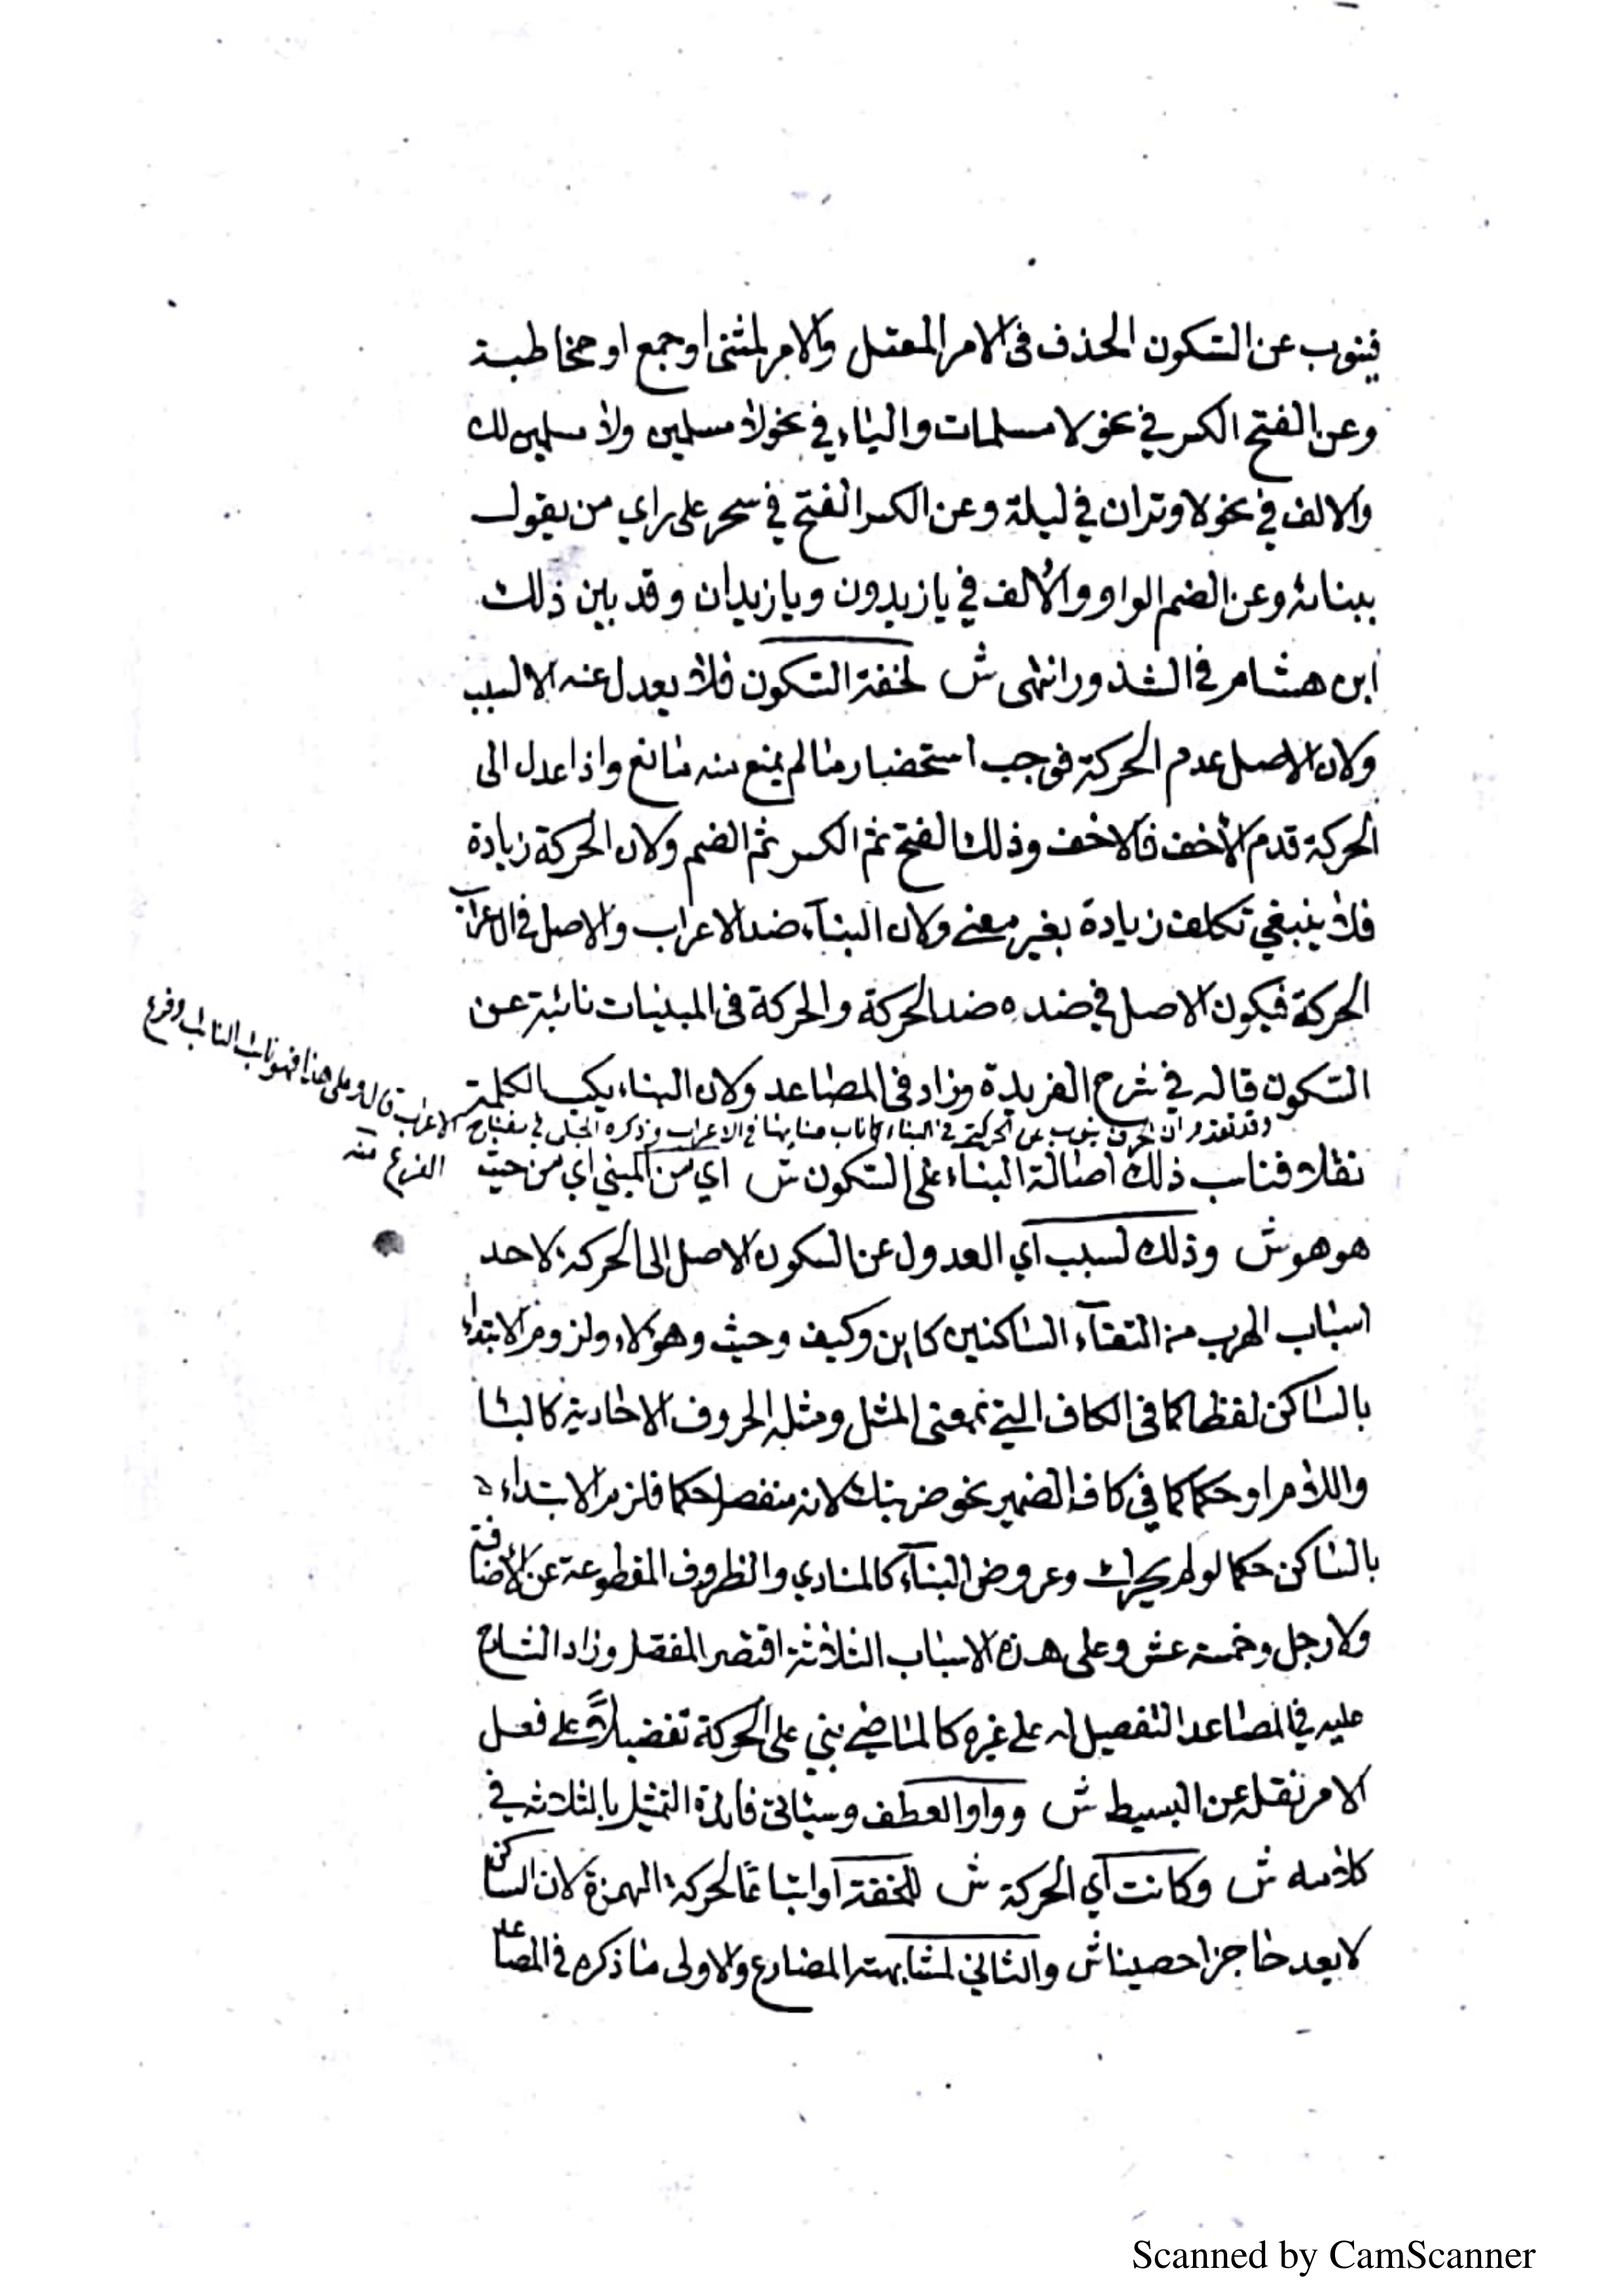 فينوب عن السكون الحذف فى الامر المعتل والامر لمثنى او جمع او مخاطبة
وعن الفتح الكسر في نحو لا مسلمات والياء في نحو لا مسلمين ولا مسلمين لك
والالف في نحو لا وتران في ليلة وعن الكسر الفتح في سحر على راي من يقول
ببنائه وعن الضم الواو والالف في يا زيدون ويا زيدان وقد بين ذلك
ابن هشام في الشذور انتهى ش لخفة السكون فلا يعدل عنه الا لسبب
ولان الاصل عدم الحركة فوجب استحضار ما لم يمنع منه مانع واذا عدل الى
الحركة قدم الأخف فالاخف وذلك الفتح ثم الكسر ثم الضم ولان الحركة زيادة
فلا ينبغي تكلف زيادة بغير معنى ولان البنآء ضد الاعراب والاصل في الاعراب
الحركة فيكون الاصل في ضده ضد الحركة والحركة فى المبنيات نائبة عن
السكون قاله في شرح الفريدة وزاد فى المصاعد ولان البناء يكسب الكلمة
وقد تقدم ان الحرف ينوب عن الحركة في البناء كما ناب منابها في الاعراب وذكره في مفتاح
الاعراب قال وعلى هذا فهو نائب النائب وفرع
الفرع منه
نقلا فناسب ذلك اصالة البناء على السكون ش اي من المبني اي من حيث
هو هو ش وذلك لسبب اي العدول عن السكون الاصل الى الحركة لاحد
اسباب الهرب من التقآء الساكنين كاين وكيف وحيث وهؤلاء ولزوم الابتداء
بالساكن لفظا كما فى الكاف التي بمعنى المثل ومثله الحروف الاحادية كالبا
واللام او حكما كما في كاف الضمير نحو ضربتك لانه منفصل حكما فلزم الابتداء
بالساكن حكما لو لم يحرك وعروض البنآء كالمنادي والظروف المقطوعة عن الأضافة
ولا رجل وخمسة عشر وعلى هذه الاسباب الثلاثة اقتصر المفصل وزاد الشارح
عليه في المصاعد التفصيل له على غيره كالماضي بني على الحركة تفضيلاً على فعل
الامر نقله عن البسيط ش وواو العطف وسياتي فائدة التمثيل بالثلاثه في
كلامه ش وكانت اي الحركة ش للخفة او اتباعًا لحركة الهمزة لان الساكن
لا يعد حاجزا حصينا ش والثاني لمشابهته المضارع والاولى ما ذكره في المصاعد
Scanned by CamScanner